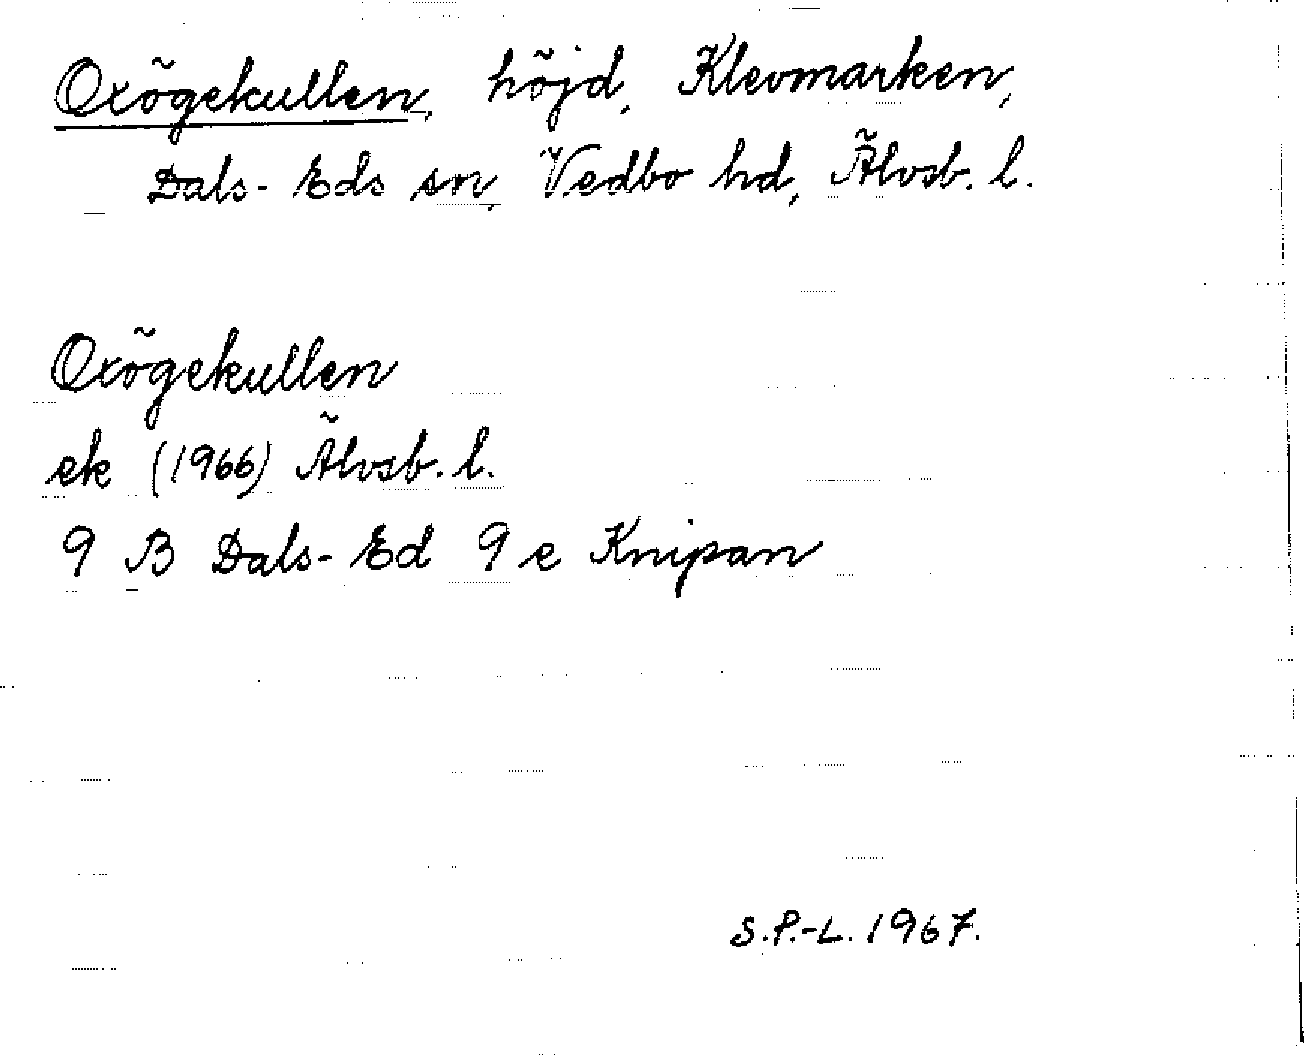 Oxögekullen, höjd, Klevmarken,
Dals-Eds sn, Vedbo hd, Älvsb. l.
Oxögekullen
ek (1966) Älvsb. l.
9 B Dals-Ed 9 e Knipan
S.P.-L. 1967.